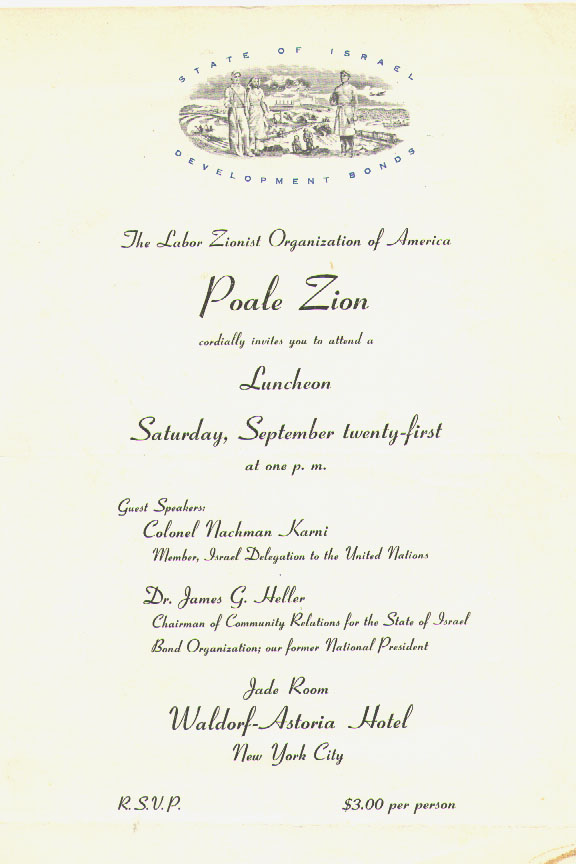 STATE OF ISRAEL
DEVELOPMENT BONDS
The Labor Zionist Organization of America
Poale Zion
cordially invites you to attend a
Luncheon
Saturday, September twenty-first
at one p. m.
Guest Speakers:
Colonel Nachman Karni
Member, Israel Delegation to the United Nations
Dr. James G. Heller
Chairman of Community Relations for the State of Israel
Bond Organization; our former National President
Jade Room
Waldorf-Astoria Hotel
New York City
R.S.V.P. $3.00 per person